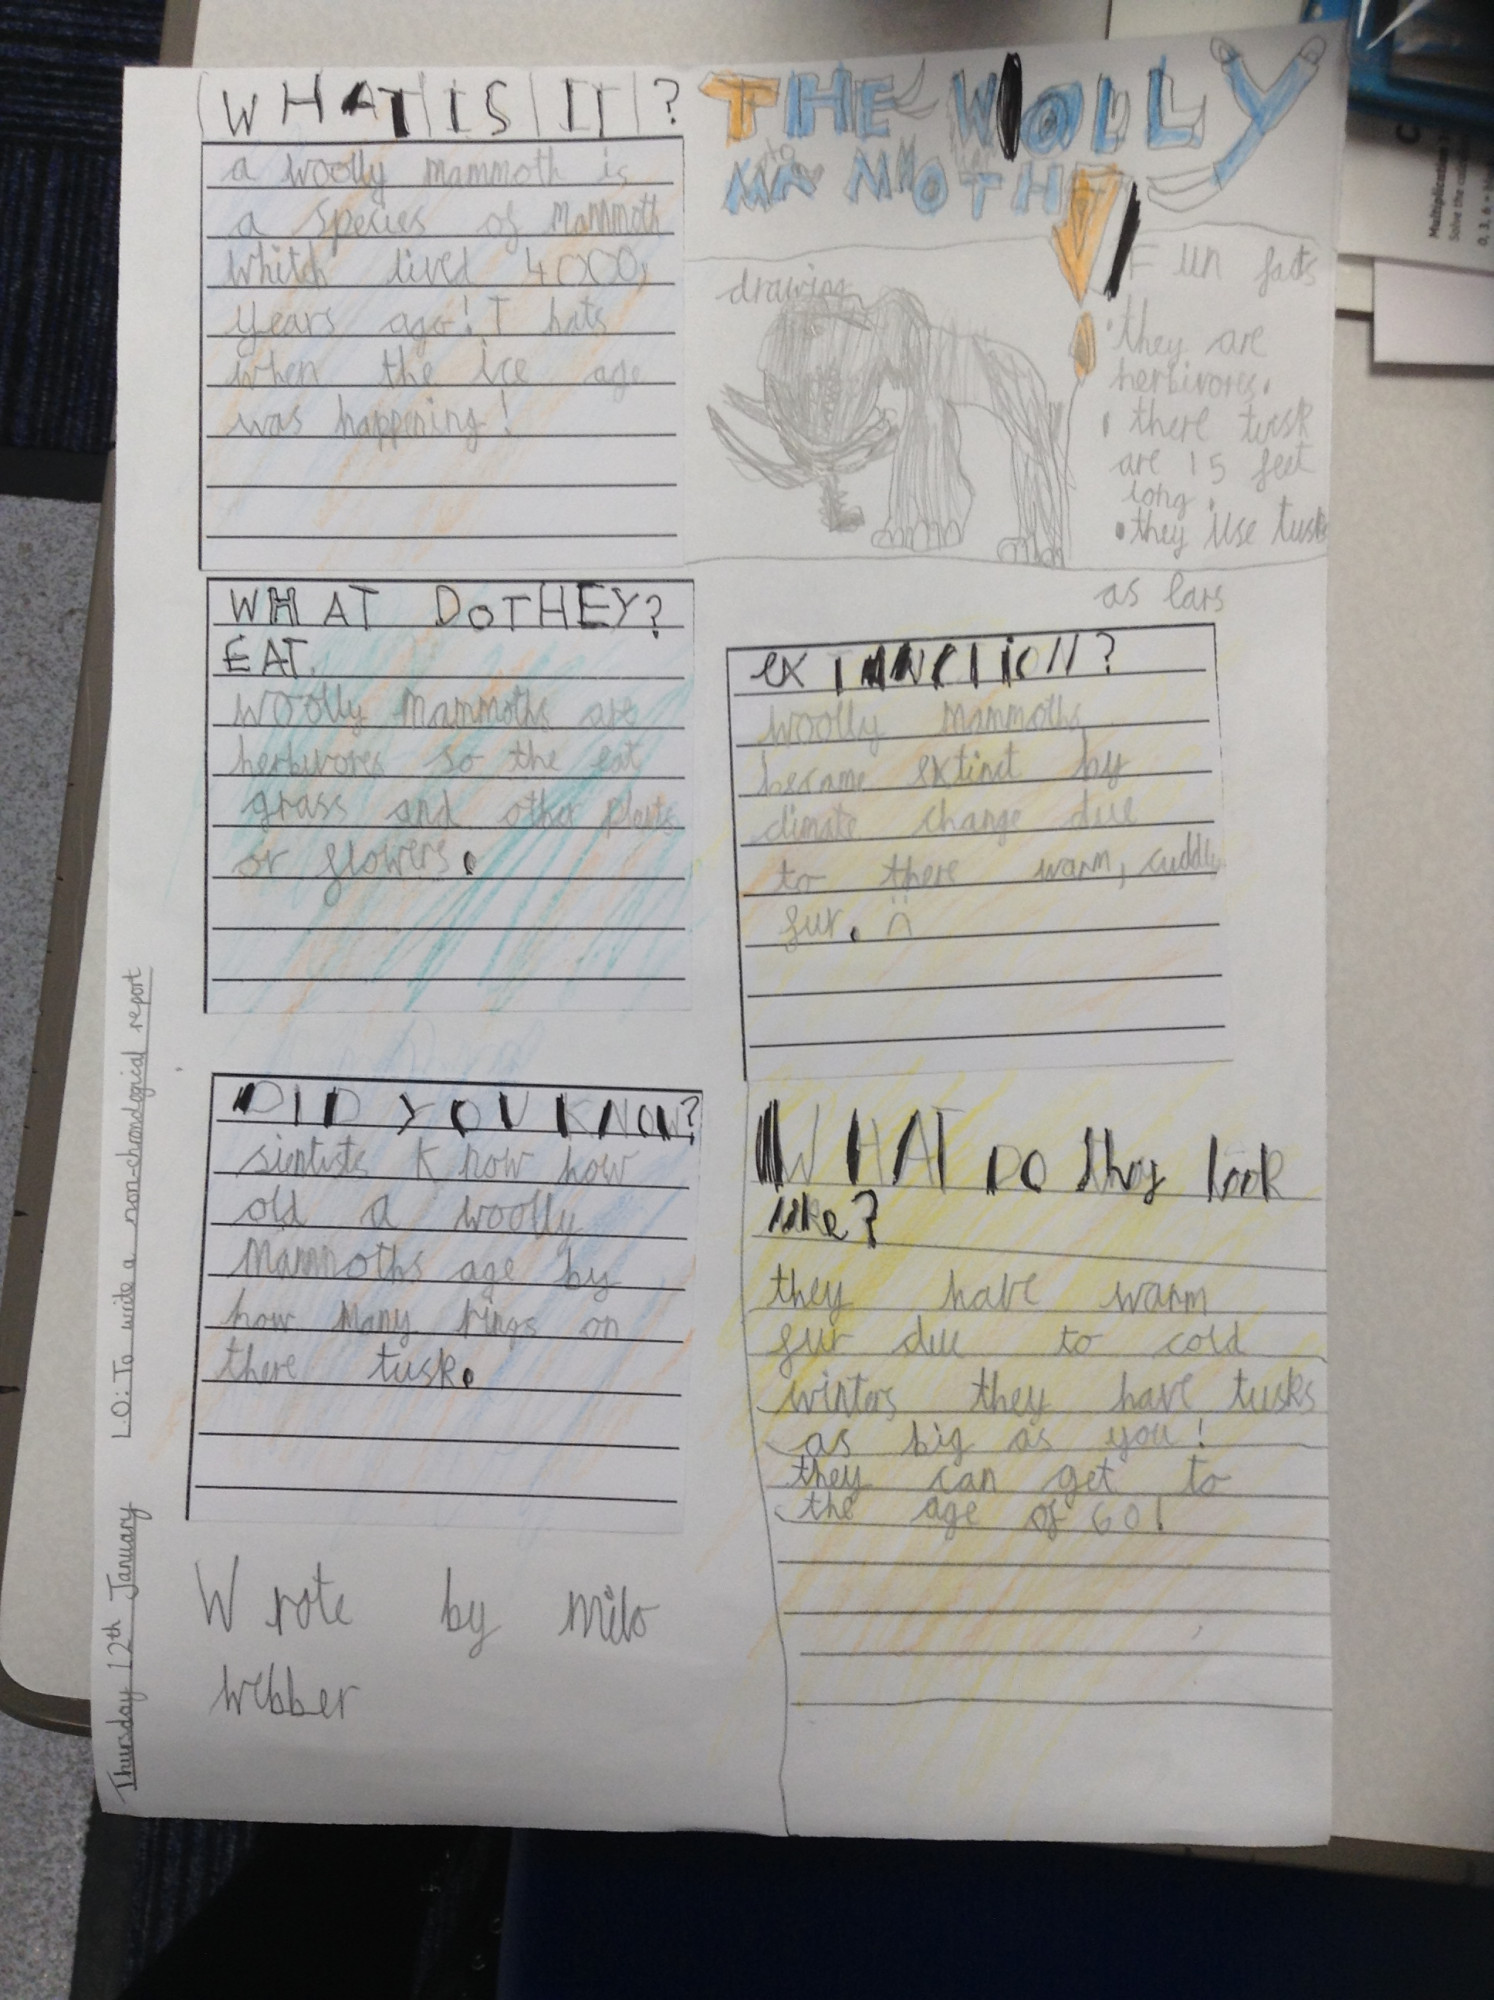 WHAT IS IT?
a woolly mammoth is
a species of mammoth
whitch lived 4000,
years ago! T hats
when the ice age
was happening!
WHAT DO THEY?
EAT.
woolly mammoths are
herbivores so the eat
grass and other plants
or flowers.
DID YOU KNOW?
sientists know how
old a woolly
mammoths age by
how many rings on
there tusk.
Wrote by milo
webber
THE WOLLY
MAMMOTH
drawing
Fun facts
• they are
herbivores.
• there tusk
are 15 feet
long.
• they use tusks
as ears
exTINCTION?
woolly mammoths
became extinct by
climate change due
to there warm, cuddly
fur.
WHAT DO they look
like?
they have warm
fur due to cold
winters they have tusks
as big as you!
they can get to
the age of 60!
Thursday 12th January L.O: To write a non-chronological report
Multiplication
Solve the
0, 3, 6